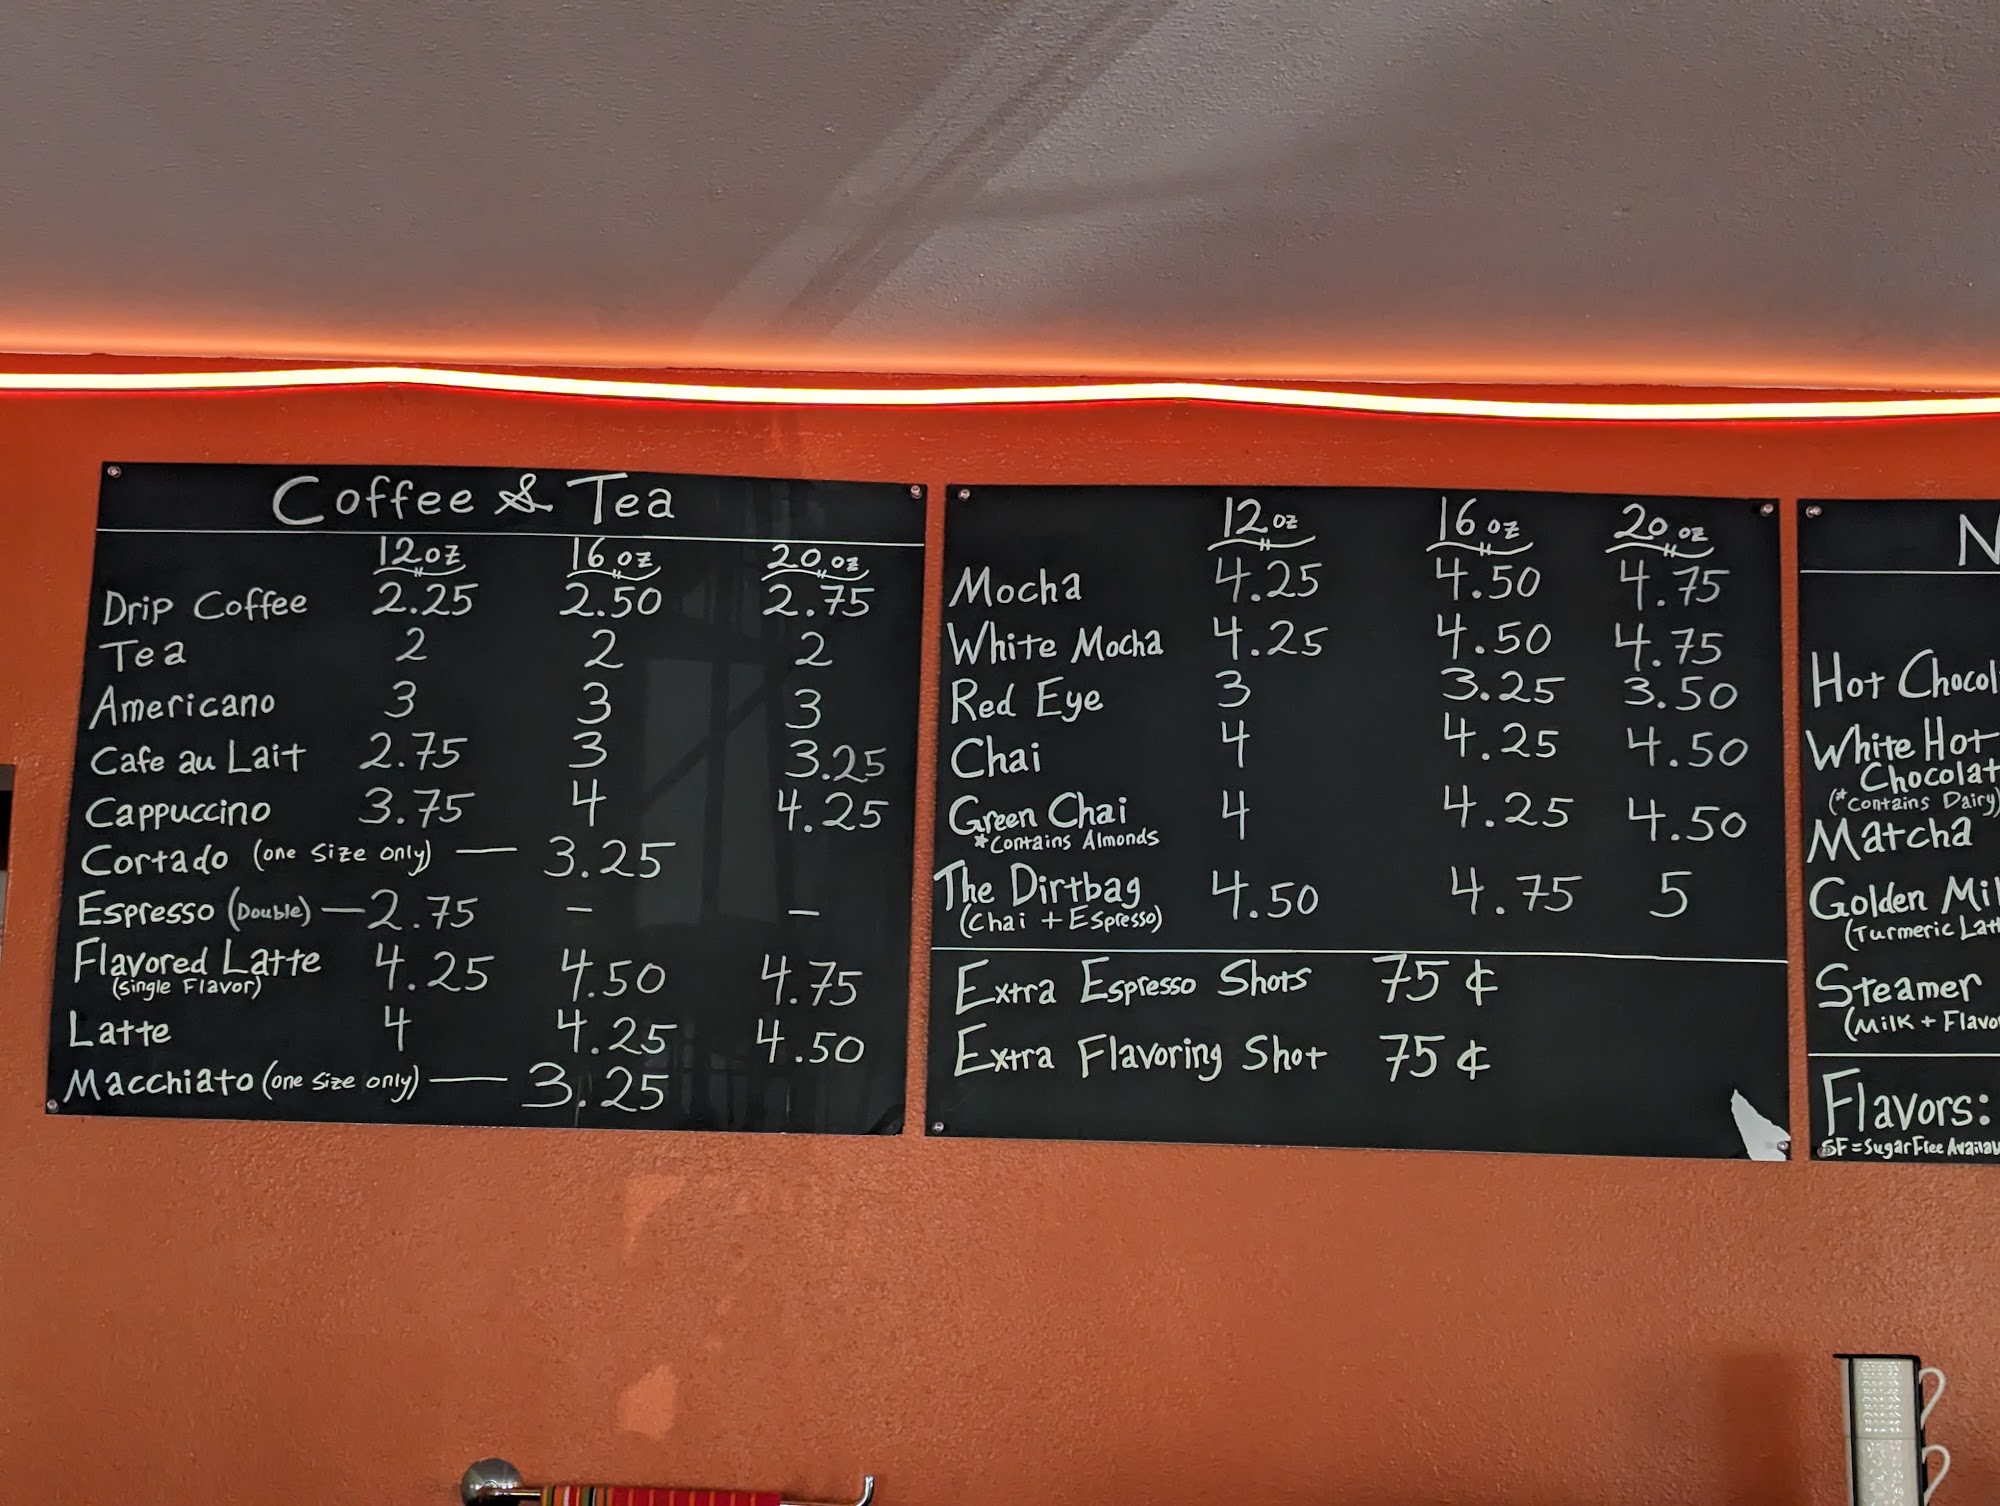 Coffee & Tea
12oz 16 oz 20 oz
Drip Coffee 2.25 2.50 2.75
Tea 2 2 2
Americano 3 3 3
Cafe au Lait 2.75 3 3.25
Cappuccino 3.75 4 4.25
Cortado (one size only) — 3.25
Espresso (Double) — 2.75 – –
Flavored Latte 4.25 4.50 4.75
(single Flavor)
Latte 4 4.25 4.50
Macchiato (one size only) — 3.25
12oz 16 oz 20 oz
Mocha 4.25 4.50 4.75
White Mocha 4.25 4.50 4.75
Red Eye 3 3.25 3.50
Chai 4 4.25 4.50
Green Chai 4 4.25 4.50
*Contains Almonds
The Dirtbag 4.50 4.75 5
(Chai + Espresso)
Extra Espresso Shots 75 ¢
Extra Flavoring Shot 75 ¢
N
Hot Chocol
White Hot
Chocolat
(*Contains Dairy)
Matcha
Golden Mil
(Turmeric Latt
Steamer
(Milk + Flavo
Flavors:
SF = Sugar Free Availa